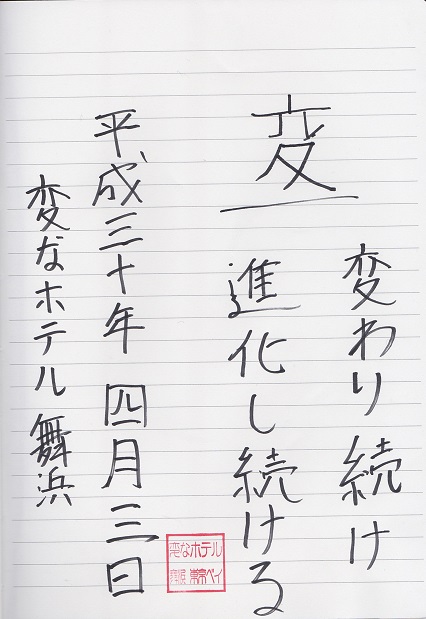 変わり続け
変
進化し続ける
平成三十年 四月三日
変なホテル 舞浜
変なホテル
舞浜 東京ベイ